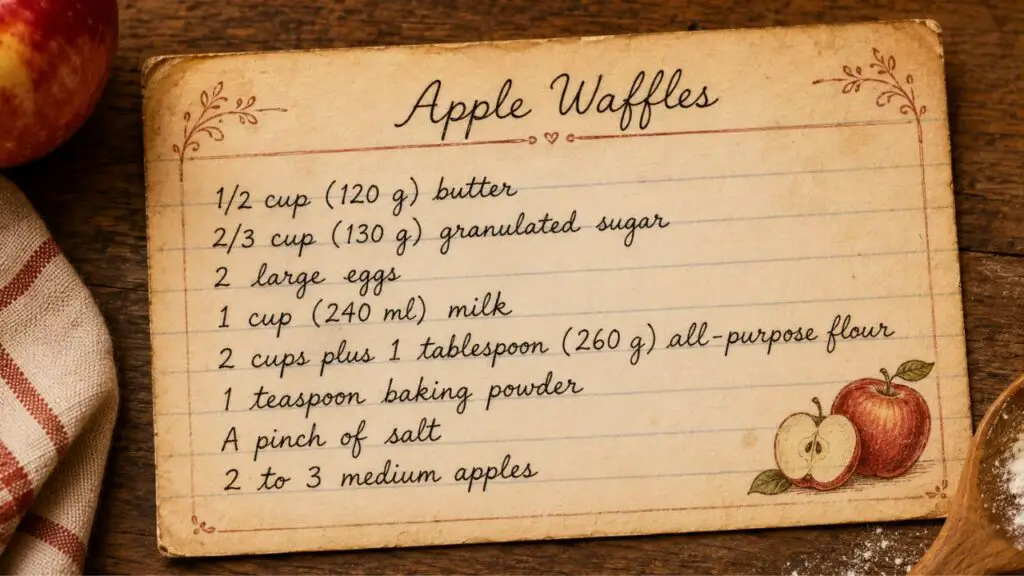 Apple Waffles
1/2 cup (120 g) butter
2/3 cup (130 g) granulated sugar
2 large eggs
1 cup (240 ml) milk
2 cups plus 1 tablespoon (260 g) all-purpose flour
1 teaspoon baking powder
A pinch of salt
2 to 3 medium apples